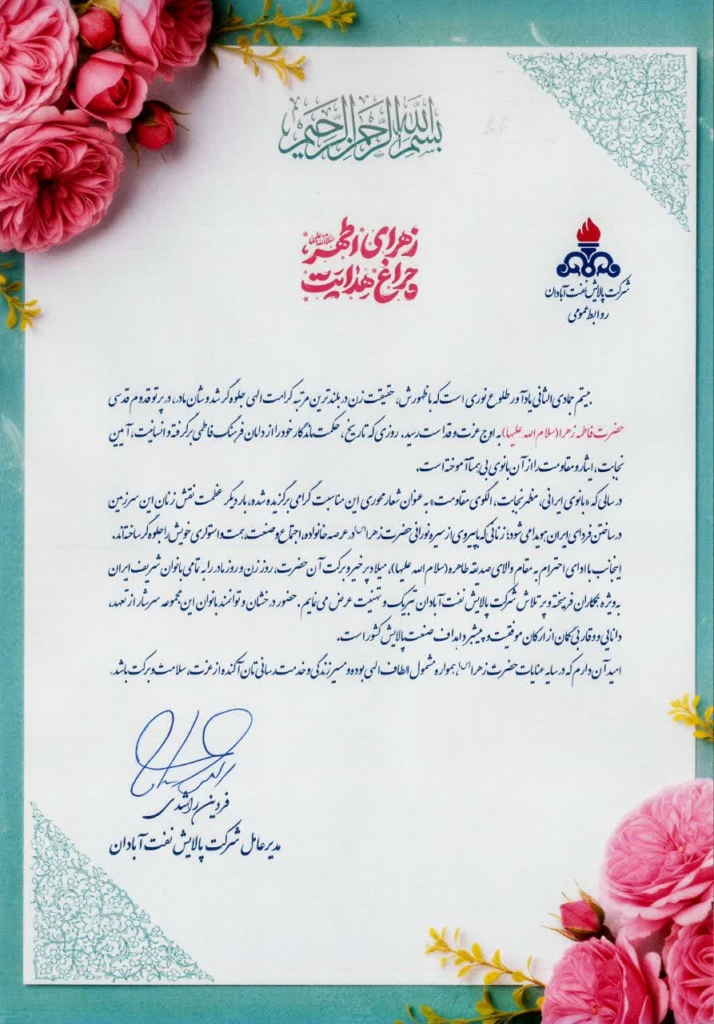 بسم الله الرحمن الرحیم
زهرای اطهر سلام الله علیها
چراغ هدایت
شرکت پالایش نفت آبادان
روابط عمومی
بیستم جمادی الثانی یادآور طلوع نوری است که با ظهورش، حقیقت زن در بلندترین مرتبه کرامت الهی جلوه‌گر شد و شأن مادر، در پرتو قدوم قدسی
حضرت فاطمه زهرا (سلام الله علیها) به اوج عزت و قداست رسید. روزی که تاریخ، حکمت ماندگار خود را از دامان فرهنگ فاطمی برگرفته و انسانیت، آیین
نجابت، ایثار و مقاومت را از آن بانوی بی همتا آموخته است.
در سالی که «بانوی ایرانی، مظهر نجابت، الگوی مقاومت» به عنوان شعار محوری این مناسبت گرامی برگزیده شده، بار دیگر عظمت نقش زنان این سرزمین
در ساختن فردای ایران هویدا می شود؛ زنانی که با پیروی از سیره نورانی حضرت زهرا(س) در عرصه خانواده، اجتماع و صنعت، همت و استواری خویش را جلوه گر ساخته‌اند.
اینجانب با ادای احترام به مقام والای صدیقه طاهره (سلام الله علیها)، میلاد پر خیر و برکت آن حضرت، روز زن و روز مادر را به تمامی بانوان شریف ایران
به ویژه همکاران فرهیخته و پر تلاش شرکت پالایش نفت آبادان تبریک و تهنیت عرض می نمایم. حضور درخشان و توانمند بانوان این مجموعه سرشار از تعهد،
دانایی و وقار، بی گمان از ارکان موفقیت و پیشبرد اهداف صنعت پالایش کشور است.
امید آن دارم که در سایه عنایات حضرت زهرا(س)، همواره مشمول الطاف الهی بوده و مسیر زندگی و خدمت رسانی تان آکنده از عزت، سلامت و برکت باشد.
فردین راشدی
مدیرعامل شرکت پالایش نفت آبادان